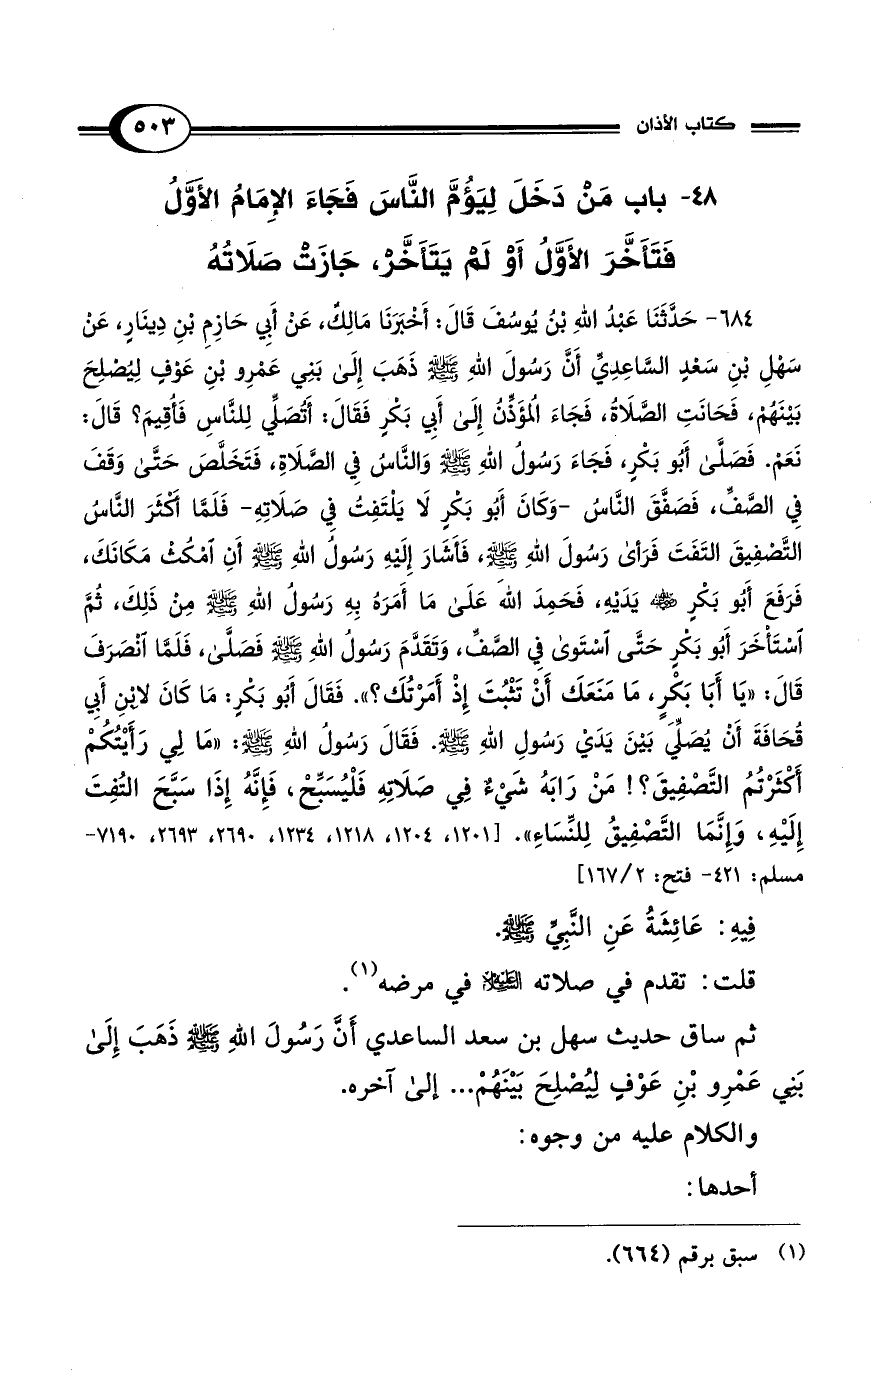 كتاب الأذان ٥٠٣
٤٨- باب مَنْ دَخَلَ لِيَؤُمَّ النَّاسَ فَجَاءَ الإِمَامُ الأَوَّلُ
فَتَأَخَّرَ الأَوَّلُ أَوْ لَمْ يَتَأَخَّرْ، جَازَتْ صَلَاتُهُ
٦٨٤- حَدَّثَنَا عَبْدُ اللهِ بْنُ يُوسُفَ قَالَ: أَخْبَرَنَا مَالِكٌ، عَنْ أَبِي حَازِمِ بْنِ دِينَارٍ، عَنْ
سَهْلِ بْنِ سَعْدٍ السَّاعِدِيِّ أَنَّ رَسُولَ اللهِ ﷺ ذَهَبَ إِلَىٰ بَنِي عَمْرِو بْنِ عَوْفٍ لِيُصْلِحَ
بَيْنَهُمْ، فَحَانَتِ الصَّلَاةُ، فَجَاءَ المُؤَذِّنُ إِلَىٰ أَبِي بَكْرٍ فَقَالَ: أَتُصَلِّي لِلنَّاسِ فَأُقِيمَ؟ قَالَ:
نَعَمْ. فَصَلَّىٰ أَبُو بَكْرٍ، فَجَاءَ رَسُولُ اللهِ ﷺ وَالنَّاسُ فِي الصَّلَاةِ، فَتَخَلَّصَ حَتَّىٰ وَقَفَ
فِي الصَّفِّ، فَصَفَّقَ النَّاسُ -وَكَانَ أَبُو بَكْرٍ لَا يَلْتَفِتُ فِي صَلَاتِهِ- فَلَمَّا أَكْثَرَ النَّاسُ
التَّصْفِيقَ التَفَتَ فَرَأىٰ رَسُولَ اللهِ ﷺ، فَأَشَارَ إِلَيْهِ رَسُولُ اللهِ ﷺ أَنِ آمْكُثْ مَكَانَكَ،
فَرَفَعَ أَبُو بَكْرٍ ﵁ يَدَيْهِ، فَحَمِدَ اللهَ عَلَىٰ مَا أَمَرَهُ بِهِ رَسُولُ اللهِ ﷺ مِنْ ذَلِكَ، ثُمَّ
ٱسْتَأْخَرَ أَبُو بَكْرٍ حَتَّى ٱسْتَوىٰ فِي الصَّفِّ، وَتَقَدَّمَ رَسُولُ اللهِ ﷺ فَصَلَّىٰ، فَلَمَّا ٱنْصَرَفَ
قَالَ: «يَا أَبَا بَكْرٍ، مَا مَنَعَكَ أَنْ تَثْبُتَ إِذْ أَمَرْتُكَ؟». فَقَالَ أَبُو بَكْرٍ: مَا كَانَ لابْنِ أَبِي
قُحَافَةَ أَنْ يُصَلِّيَ بَيْنَ يَدَيْ رَسُولِ اللهِ ﷺ. فَقَالَ رَسُولُ اللهِ ﷺ: «مَا لِي رَأَيْتُكُمْ
أَكْثَرْتُمُ التَّصْفِيقَ؟! مَنْ رَابَهُ شَيْءٌ فِي صَلَاتِهِ فَلْيُسَبِّحْ، فَإِنَّهُ إِذَا سَبَّحَ التُفِتَ
إِلَيْهِ، وَإِنَّمَا التَّصْفِيقُ لِلنِّسَاءِ». [١٢٠١، ١٢٠٤، ١٢١٨، ١٢٣٤، ٢٦٩٠، ٢٦٩٣، ٧١٩٠-
مسلم: ٤٢١- فتح: ٢/ ١٦٧]
فِيهِ: عَائِشَةُ عَنِ النَّبِيِّ ﷺ.
قلت: تقدم في صلاته ﵇ في مرضه(١).
ثم ساق حديث سهل بن سعد الساعدي أَنَّ رَسُولَ اللهِ ﷺ ذَهَبَ إِلَىٰ
بَنِي عَمْرِو بْنِ عَوْفٍ لِيُصْلِحَ بَيْنَهُمْ... إلىٰ آخره.
والكلام عليه من وجوه:
أحدها:
(١) سبق برقم (٦٦٤).